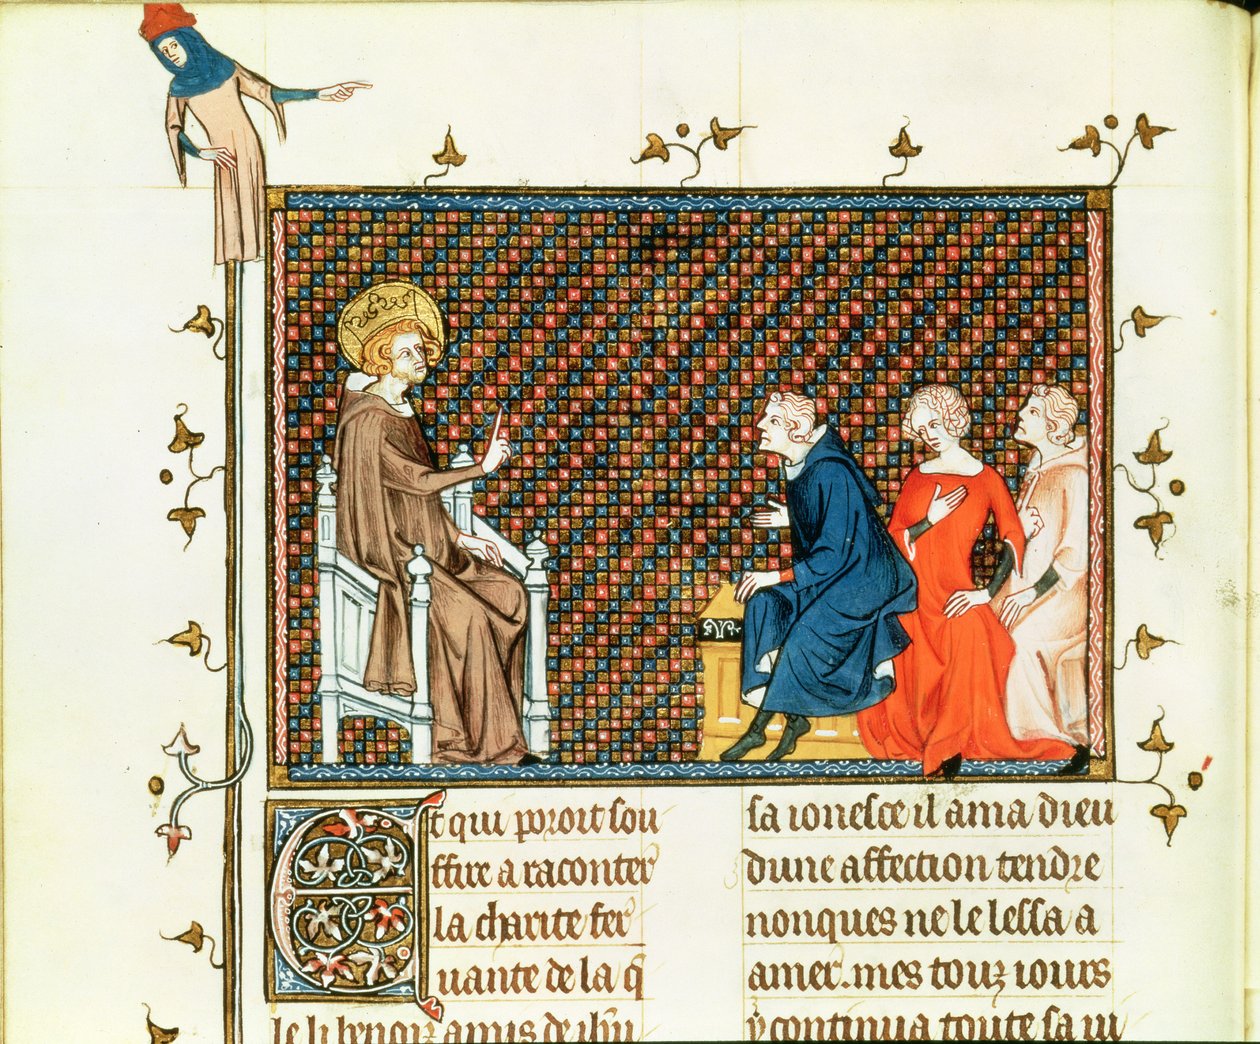 Et qui poroit sou
ffire a raconter
la charite fer
uante de la q̄
le li benoiz amis de ihū
sa ionesce il ama dieu
dune affection tendre
nonques ne le lessa a
amer. mes touz iours
y continua toute sa ui